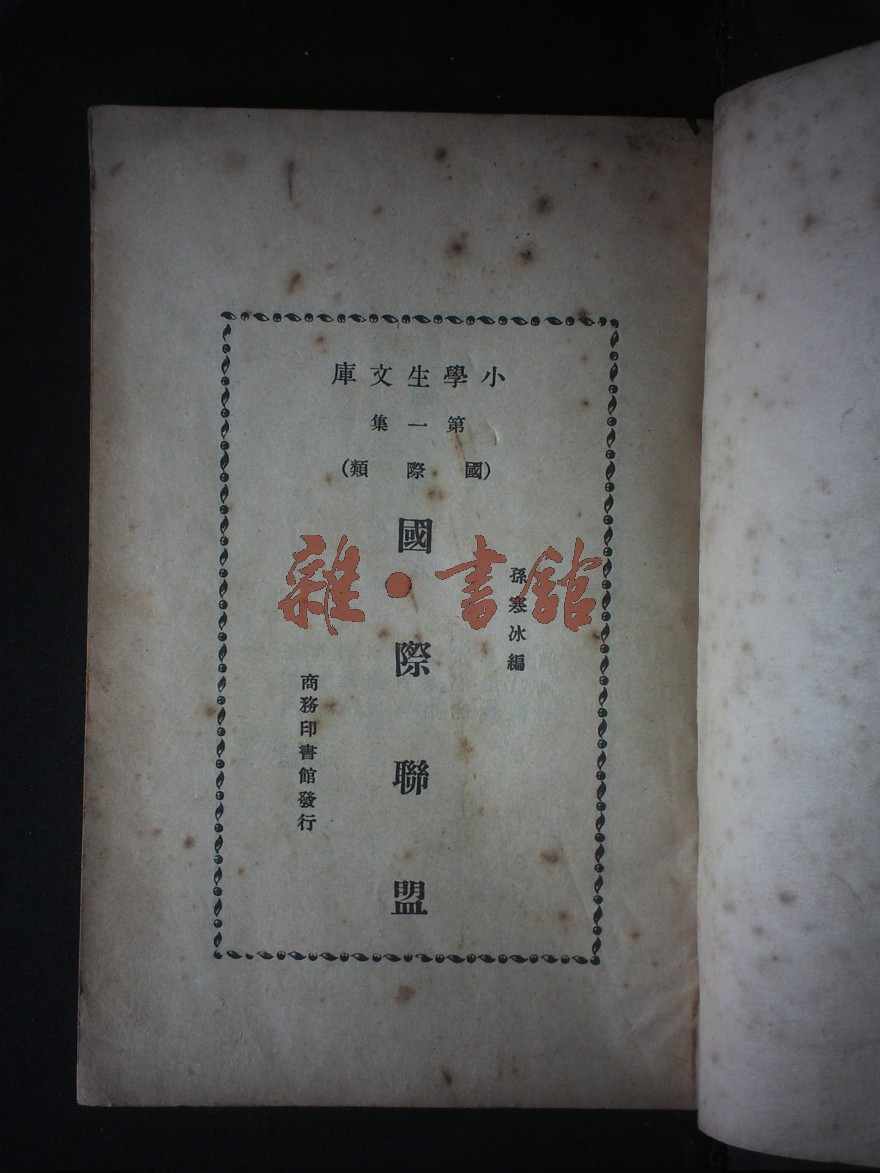 小學生文庫
第一集
(國際類)
孫寒冰編
國際聯盟
商務印書館發行
雜·書館